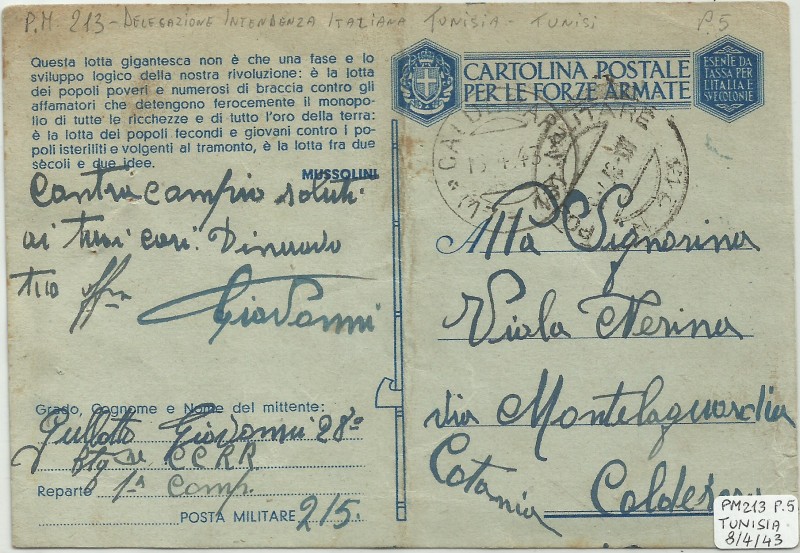 P.M. 213 - DELEGAZIONE INTENDENZA ITALIANA TUNISIA - TUNISI P.5
Questa lotta gigantesca non è che una fase e lo
sviluppo logico della nostra rivoluzione: è la lotta
dei popoli poveri e numerosi di braccia contro gli
affamatori che detengono ferocemente il monopo-
lio di tutte le ricchezze e di tutto l'oro della terra:
è la lotta dei popoli fecondi e giovani contro i po-
poli isteriliti e volgenti al tramonto, è la lotta fra due
secoli e due idee.
MUSSOLINI
Contra campio saluti
ai tuoi cari. Di nuovo
tuo
Giovanni
Grado, Cognome e Nome del mittente:
Giovanni 28°
Btg. CCRR
Reparto 1a Comp.
POSTA MILITARE 215.
CARTOLINA POSTALE
PER LE FORZE ARMATE
ESENTE DA
TASSA PER
L'ITALIA E
SUE COLONIE
Alla Signorina
Viola Nerina
via Montelaguardia
Catania
PM213 P.5
TUNISIA
8/4/43